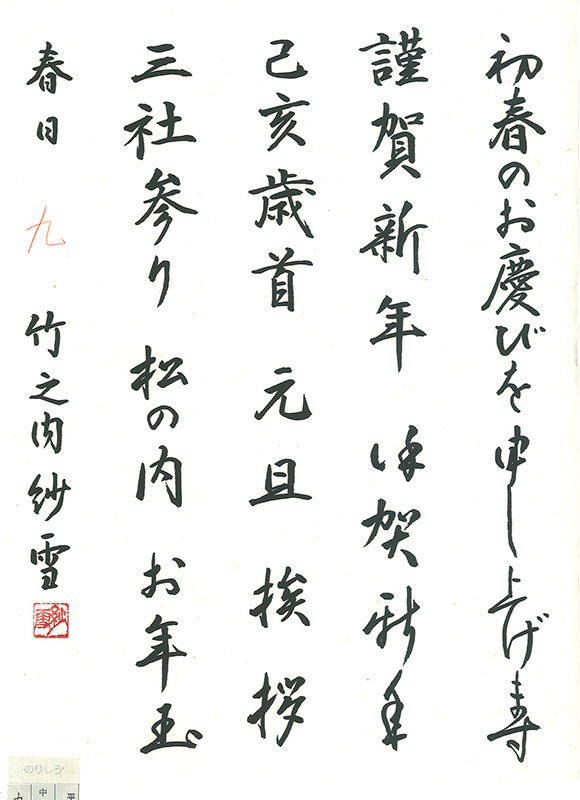 初春のお慶びを申し上げ寿
謹賀新年 謹賀新年
己亥歳首 元旦 挨拶
三社参り 松の内 お年玉
春日 九 竹之内紗雪
紗雪
のりしろ
中